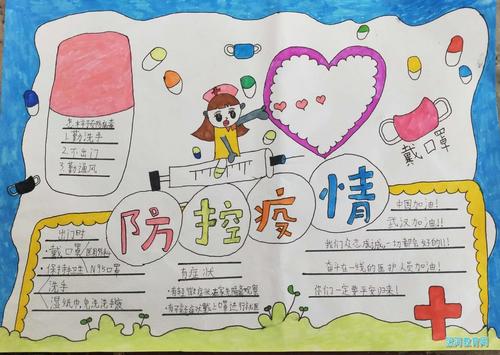 怎样预防病毒
1.勤洗手
2.不出门
3.勤通风
戴口罩
防控疫情
出门时
戴口罩/医用外科
·保持卫生\N95口罩
洗手
湿纸巾,免洗洗手液
有症状
中国加油!
武汉加油!!
我们众志成城,一切都会好的!!
奋斗在一线的医护人员加油!
你们一定要平安归来!